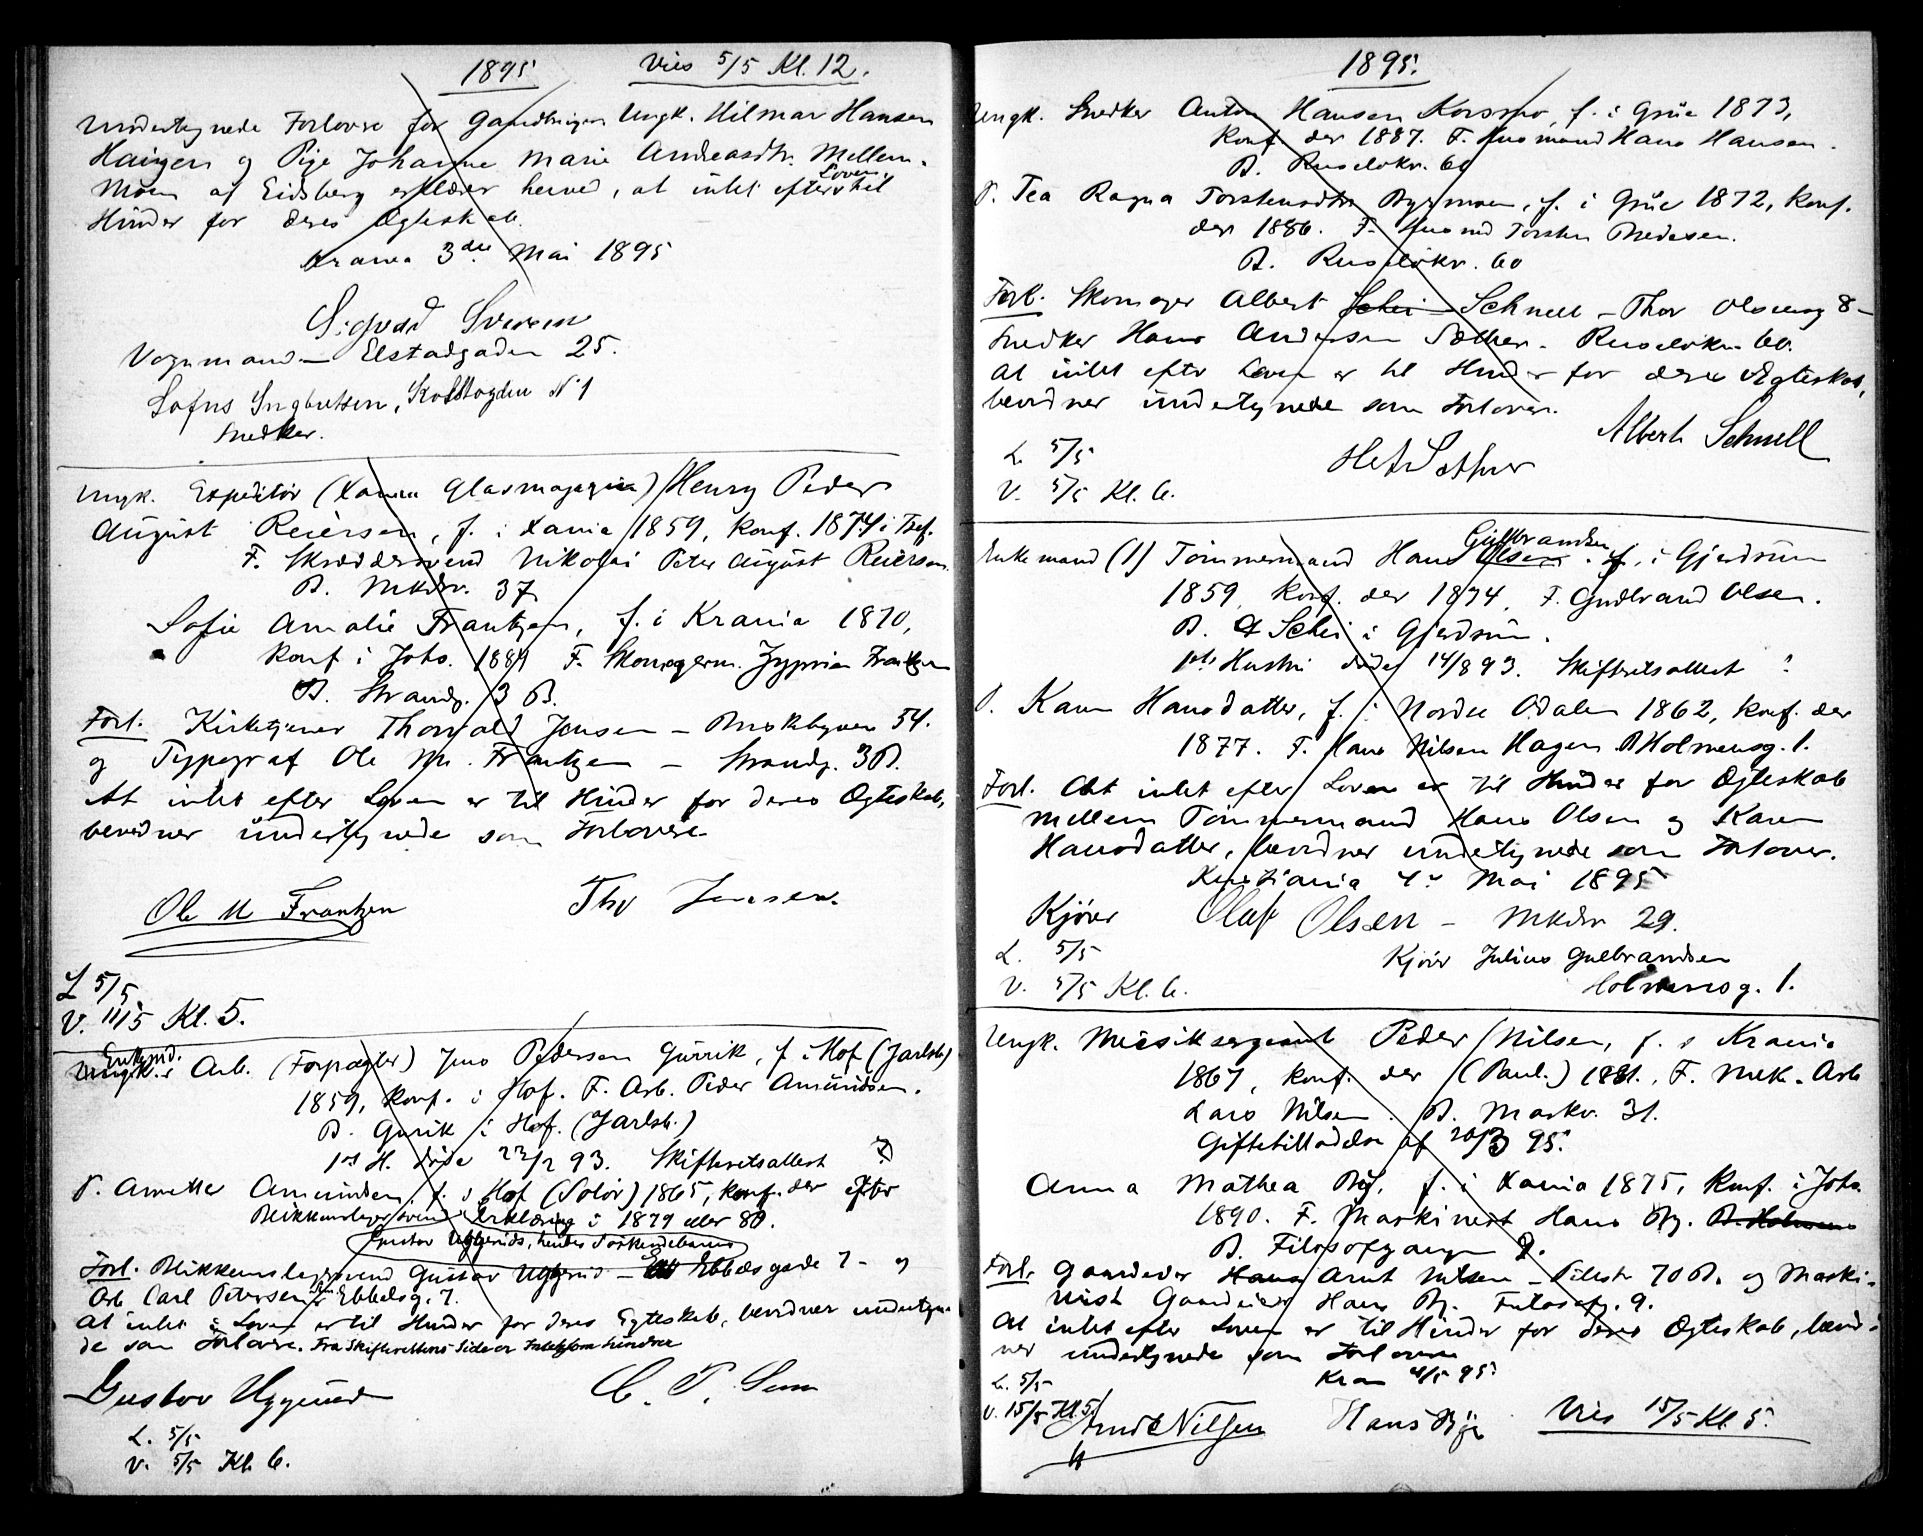 1895
Vies 5/5 Kl. 12.
Undertegnede Forlovere for Ungk. Hilmar Hansen
Haugen og Pige Johanne Marie Andreasdtr. Mellem-
Moen af Eidsberg erklærer herved, at intet efter Loven til
Hinder for deres Ægteskab.
Krania 3die Mai 1895
Sigvard Svensen
Vognmand - Elstadgaden 25.
Lofus Ingbretsen, No 1
Snedker.
Ungk. Expeditör (Xania Glasmagazin) Henry Peder
August Reiersen, f. i Xania 1859, konf. 1874 i Tref.
F. Skræddersvend Nikolai Peter August Reiersen
B. Mkdv. 37
Sofie Amalie Frantzen, f. i Krania 1870,
konf i Joh. 1884 F. Skomagerm. Zyprian Frantzen
B. Strandg. 3 B.
Forl. Kirketjener Thorvald Jensen - 54.
og Typograf Ole M. Frantzen - Strandg. 3 B.
At intet efter Loven er til Hinder for deres Ægteskab,
bevidner undertegnede som Forlovere
Ole M Frantzen
Tho Jensen.
L 5/5
V. 11/5 Kl. 5.
Enkemd.
Ungk. Arb. (Forpagter) Jens Pedersen Gurrik, f. i Hof (Jarlsb)
1859, konf. i Hof. F. Arb. Peder Amundsen.
B. Gurik i Hof. (Jarlsb.)
1ste H. døde 22/2 93. Skifteretsattest ?
P. Anette Amundsen, f. i Hof (Solör) 1865, konf. der efter
Blikkenslagersvend Erklæring i 1879 eller 80.
Gustav Uggeruds, hendes Söskendebarns
Forl. Blikkenslagersvend Gustav Uggerud - Ebbelsgade 7 - og
Arb. Carl Petersen Ebbelsg. 7.
At intet i Loven er til Hinder for deres Egteskab, bevidner undertegne-
de som Forlovere. Fra Skifterettens Side er Intet som hindrer
Gustav Uggerud
C. P. Sem
L. 5/5
V. 5/5 Kl. 6.
1895.
Ungk. Snedker Anton Hansen Korsmo, f. i Grue 1873,
konf. der 1887. F. Husmand Hans Hansen.
B. Ruselökv. 60
P. Tea Ragna Torstensdtr Bysmoen, f. i Grue 1872, konf.
der 1886. F. Husmd Torsten Pedersen.
B. Ruselökv. 60
Forl. Skomager Albert Schei Schnell - Thor Olsensg 8 -
Snedker Hans Andersen Sæther - Ruselökv. 60.
At intet efter Loven er til Hinder for deres Ægteskab,
bevidner undertegnede som Forlovere.
Albert Schnell
H A Sæther
L. 5/5
V. 5/5 Kl. 6.
Gulbrandsen
Enkemand (1) Tömmermand Hans Olsen. f. i Gjerdrum
1859, konf. der 1874. F. Gudbrand Olsen.
B. Schei i Gjerdrum.
1ste Hustru døde 14/8 93. Skifteretsattest ?
P. Karen Hansdatter, f. i Nordre Odalen 1862, konf. der
1877. F. Hans Nilsen Hagen. B Holmensg. 1.
Forl. At intet efter Loven er til Hinder for Ægteskab
mellem Tömmermand Hans Olsen og Karen
Hansdatter, bevidner undertegnede som Forlover.
Kristiania 4de Mai 1895
Kjörer Olaf Olsen - Mkdv 29.
L. 5/5
Kjörer Julius Gulbrandsen
V. 5/5 Kl. 6.
Holmensg. 1.
Ungk. Musiksergeant Peder Nilsen, f. i Krania
1867, konf. der (Paul.) 1881. F. Mek. Arb
Lars Nilsen. B. Markv. 31.
Giftetilladelse af 20/3 95.
Anna Mathea By, f. i Xania 1875, konf. i Joh.
1890. F. Maskinist Hans By. B. Holmens
B. Filosofgangen 9.
Forl. Gaardeier Hans Arnt Nilsen - Pilestr 70 B. og Maski-
nist Gaardeier Hans By. Filosofg. 9.
At intet efter Loven er til Hinder for deres Ægteskab, bevid-
ner undertegnede som Forlovere
L. 5/5
Kran 4/5 95.
V. 15/5 Kl 5.
Arndt Nilsen
Hans By
Vies 15/5 Kl. 5.